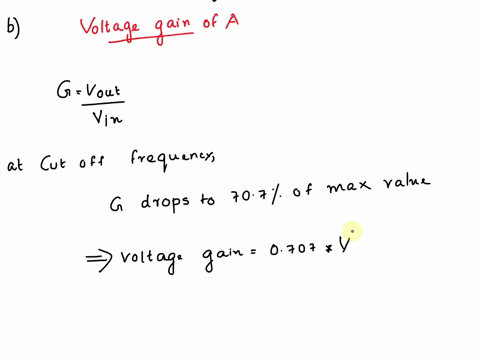 b) Voltage gain of A
G = Vout
Vin
at Cut off frequency,
G drops to 70.7% of max value
⇒ Voltage gain = 0.707 * V